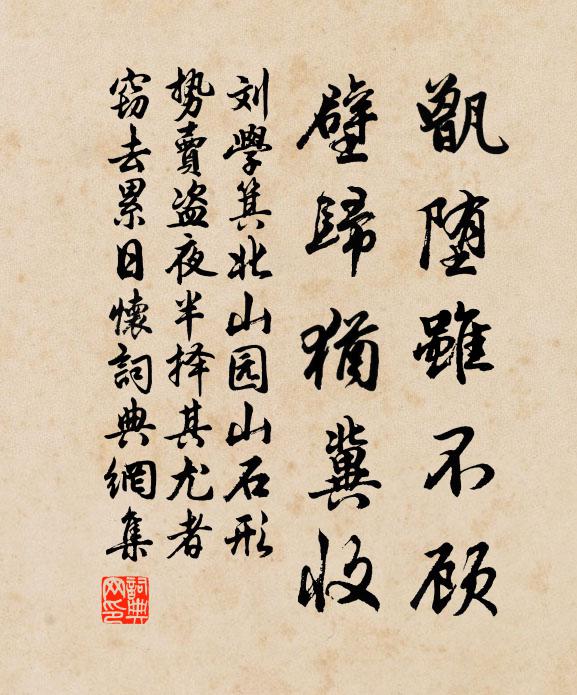 甑堕雖不顾
壁歸猶冀收
刘學箕北山园山石形
势賣盗夜半择其尤者
窃去累日懷詞典網集
詞典網印